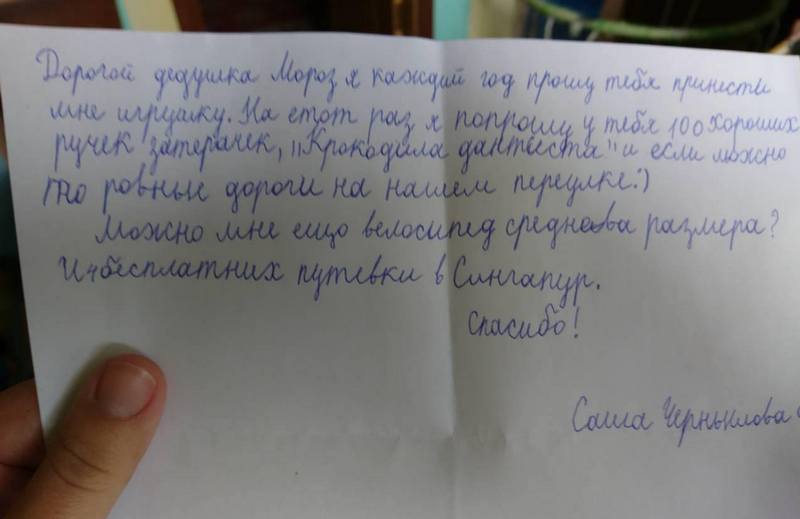 Дорогой дедушка Мороз я каждий год прошу тебя принести
мне игрушку. На етот раз я попрошу у тебя 100 хороших
ручек затерачек, "Крокодила дантиста" и если можно
то ровные дороги на нашем переулке:)
Можно мне ещо велосипед среднева размера?
И 4 бесплатних путевки в Сингапур.
Спасибо!
Саша Чернылова